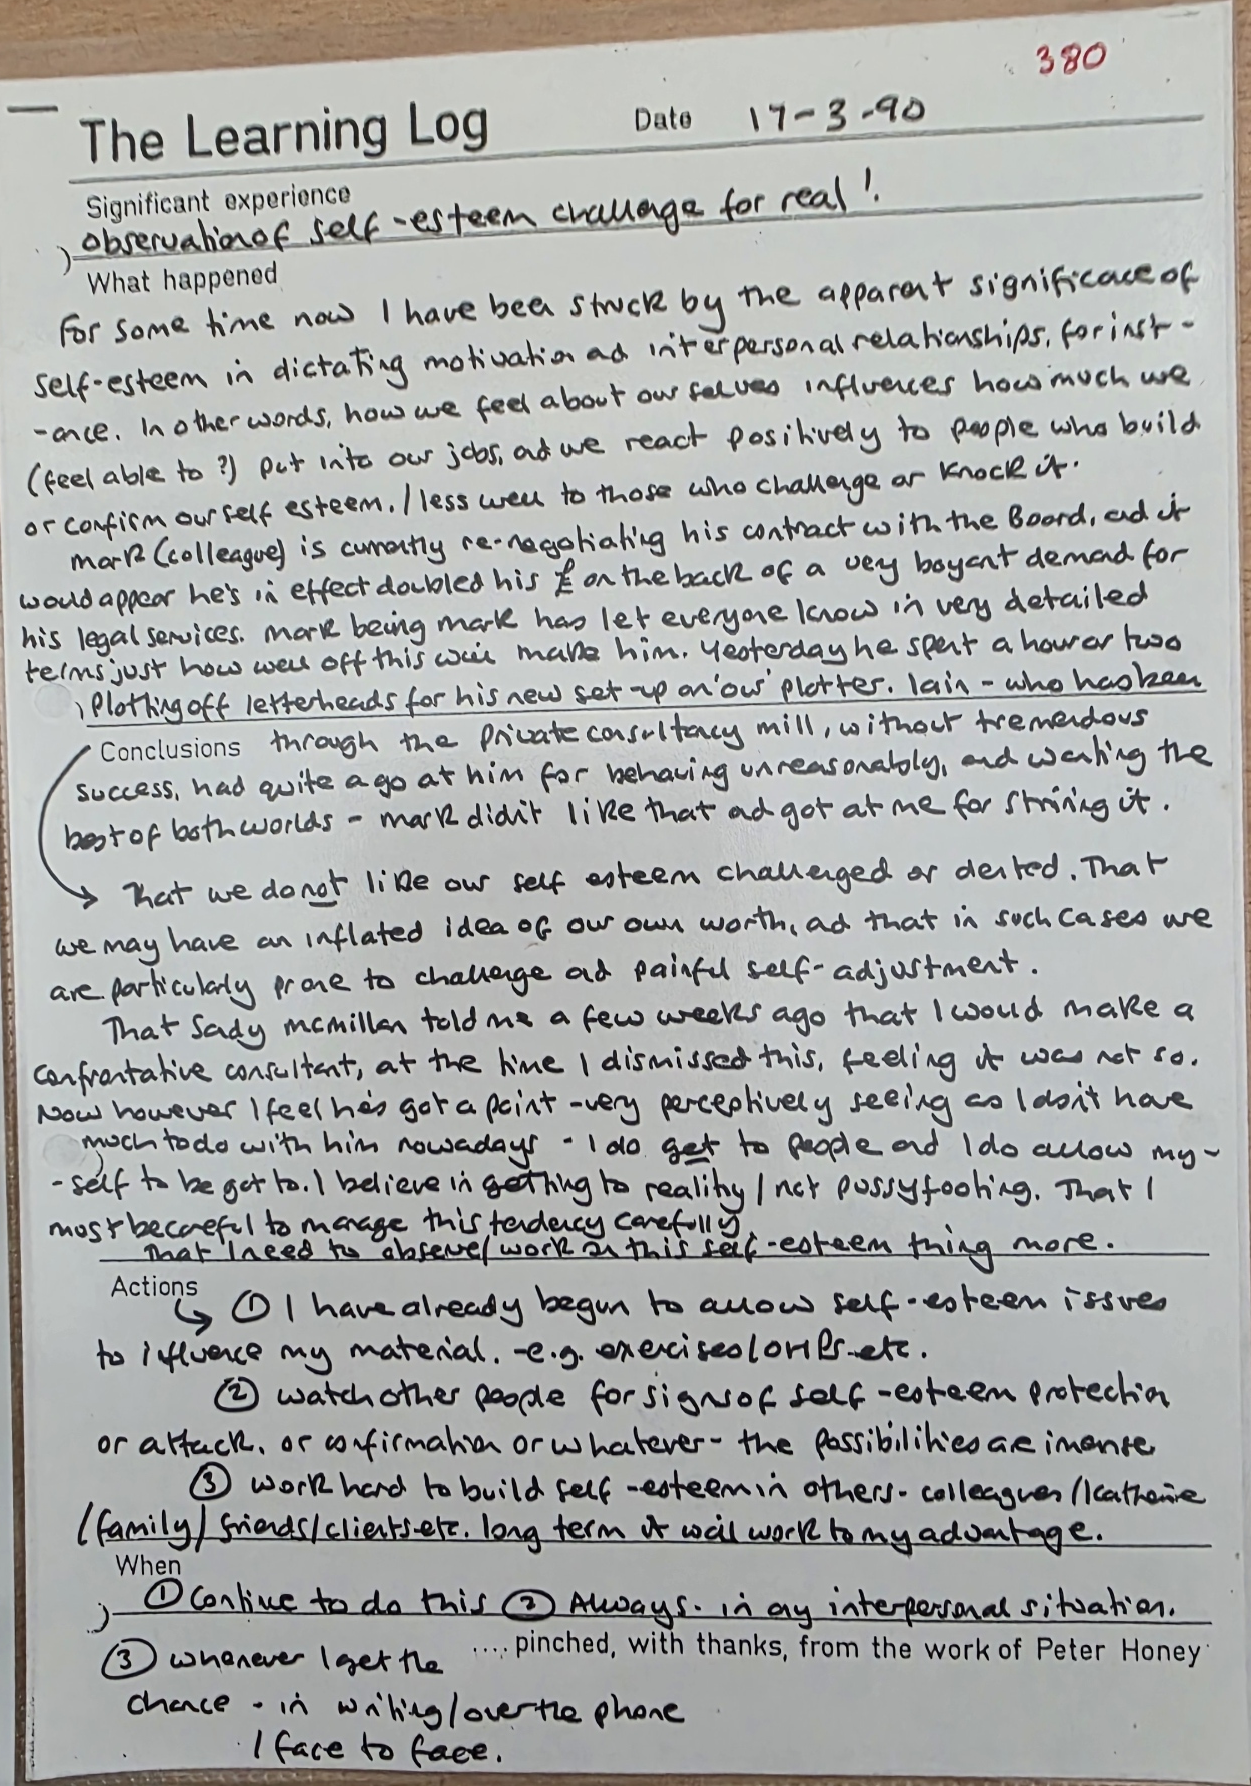 380
The Learning Log Date 17-3-90
Significant experience
observation of self-esteem challenge for real!
What happened
For some time now I have been struck by the apparent significace of
self-esteem in dictating motivation ad interpersonal relationships, for inst-
-ance. In other words, how we feel about our selves influences how much we
(feel able to?) put into our jobs, ad we react positively to people who build
or confirm our self esteem. / less well to those who challenge or knock it.
Mark (colleague) is currently re-negotiating his contract with the Board, and it
would appear he's in effect doubled his £ on the back of a very boyant demand for
his legal services. Mark being Mark has let everyone know in very detailed
terms just how well off this will make him. Yesterday he spent a hour or two
plotting off letterheads for his new set-up on 'our' plotter. Iain - who has been
Conclusions through the private consultancy mill, without tremendous
success, had quite a go at him for behaving unreasonably, and wanting the
best of both worlds - Mark didn't like that ad got at me for stirring it.
That we do not like our self esteem challenged or dented. That
we may have an inflated idea of our own worth, ad that in such cases we
are particularly prone to challenge ad painful self-adjustment.
That Sady McMillan told me a few weeks ago that I would make a
confrontative consultant, at the time I dismissed this, feeling it was not so.
Now however I feel he's got a point - very perceptively seeing as I don't have
much to do with him nowadays - I do get to people and I do allow my-
-self to be got to. I believe in getting to reality / not pussyfooting. That I
must be careful to manage this tendency carefully
That I need to observe / work on this self-esteem thing more.
Actions ① I have already begun to allow self-esteem issues
to influence my material. - e.g. exercises etc.
② watch other people for signs of self-esteem protection
or attack, or confirmation or whatever - the possibilities are imense
③ work hard to build self-esteem in others - colleagues / Katherine
/ family / friends / clients etc. long term it will work to my advantage.
When
① Continue to do this ② Always. in any interpersonal situation.
.... pinched, with thanks, from the work of Peter Honey
③ whenever I get the
chance - in writing / over the phone
/ face to face.